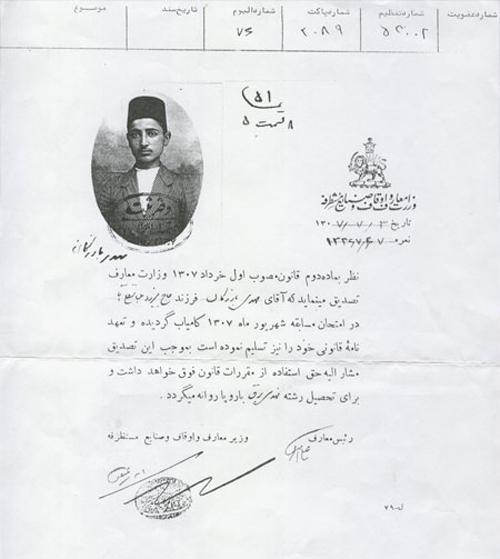 شماره عضویت شماره تنظیم شماره پاکت شماره آلبوم تاریخ سند موضوع
۲۰۸۹ ۷۶
قسمت ۵
وزارت معارف و اوقاف و صنایع مستظرفه
تاریخ ۳ / ۷ / ۱۳۰۷
نمره
نظر بماده دوم قانون مصوب اول خرداد ۱۳۰۷ وزارت معارف
تصدیق مینماید که آقای مهدی بازرگان فرزند حاج
در امتحان مسابقه شهریور ماه ۱۳۰۷ کامیاب گردیده و تعهد
نامهٔ قانونی خود را نیز تسلیم نموده است بموجب این تصدیق
مشارالیه حق استفاده از مقررات قانون فوق خواهد داشت و
برای تحصیل رشته مهندسی برق باروپا روانه میگردد .
رئیس معارف وزیر معارف و اوقاف و صنایع مستظرفه
ل-۷۹۰